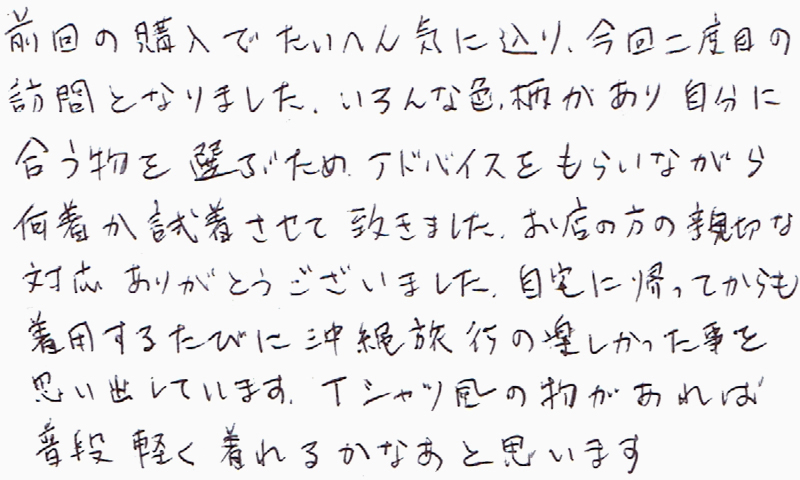 前回の購入でたいへん気に込り、今回二度目の
訪問となりました。いろんな色、柄があり自分に
合う物を選ぶため、アドバイスをもらいながら
何着か試着させて致きました。お店の方の親切な
対応ありがとうございました。自宅に帰ってからも
着用するたびに沖縄旅行の楽しかった事を
思い出しています。Tシャツ風の物があれば
普段軽く着れるかなあと思います